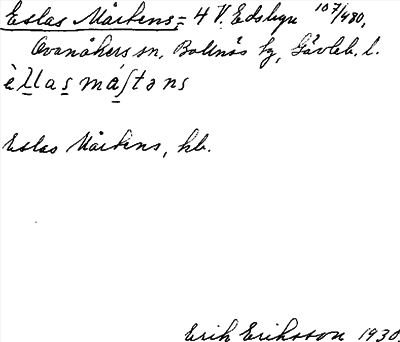 Eslas Mårtens = 4 V. Edsbyn 107/480,
Ovanåkers sn, Bollnäs tg, Gävleb. l.
èllas máſtəns
Eslas Mårtens, hb.
Erik Eriksson 1930.